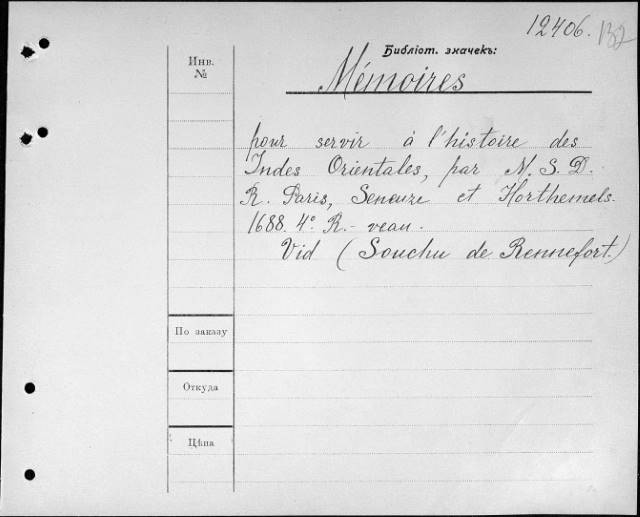 12406. 132
Библіот. значекъ:
Инв.
№
Mémoires
pour servir à l'histoire des
Indes Orientales, par N. S. D.
R. Paris, Seneuze et Horthemels.
1688. 4º. R. - veau.
Vid (Souchu de Rennefort.)
По заказу
Откуда
Цѣна